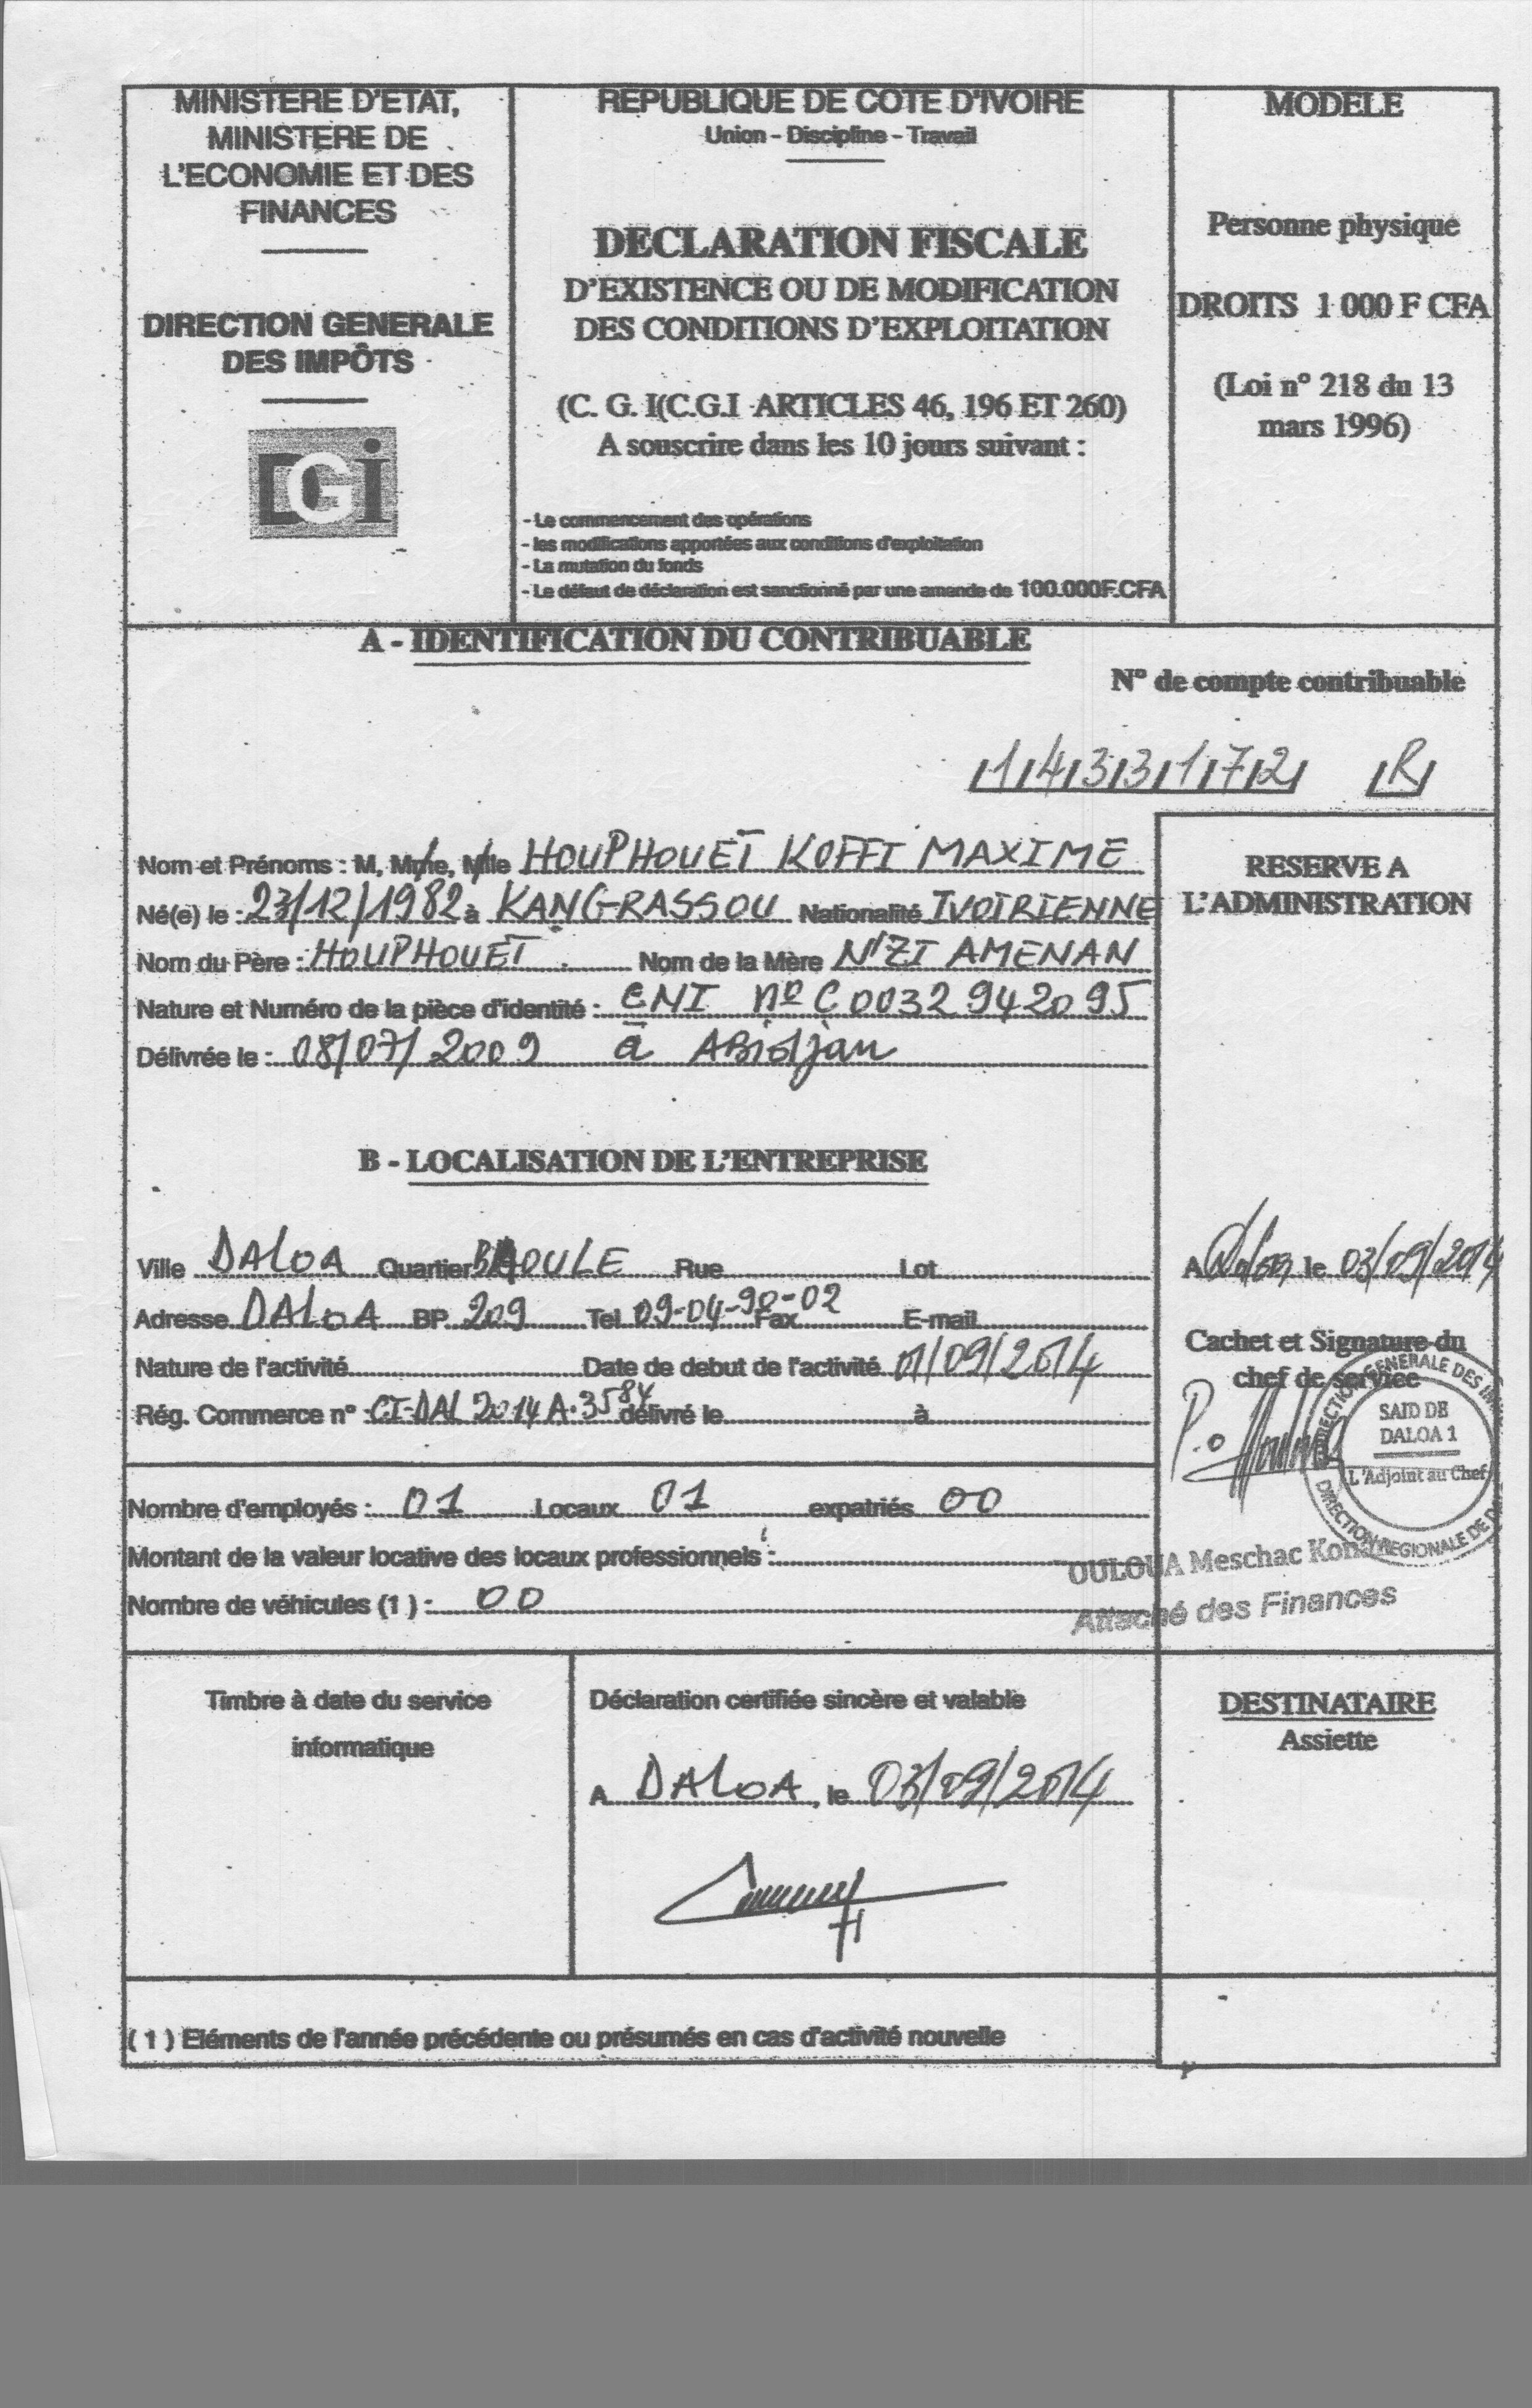 MINISTERE D'ETAT,
MINISTERE DE
L'ECONOMIE ET DES
FINANCES
DIRECTION GENERALE
DES IMPÔTS
DGI
REPUBLIQUE DE COTE D'IVOIRE
Union - Discipline - Travail
DECLARATION FISCALE
D'EXISTENCE OU DE MODIFICATION
DES CONDITIONS D'EXPLOITATION
(C. G. I(C.G.I ARTICLES 46, 196 ET 260)
A souscrire dans les 10 jours suivant :
- Le commencement des opérations
- les modifications apportées aux conditions d'exploitation
- La mutation du fonds
- Le défaut de déclaration est sanctionné par une amende de 100.000F.CFA
MODELE
Personne physique
DROITS 1 000 F CFA
(Loi n° 218 du 13
mars 1996)
A - IDENTIFICATION DU CONTRIBUABLE
N° de compte contribuable
1 4 3 3 1 7 2 R
Nom et Prénoms : M, Mme, Mlle HOUPHOUET KOFFI MAXIME
Né(e) le : 23/12/1982 à KANGRASSOU Nationalité IVOIRIENNE
Nom du Père : HOUPHOUET Nom de la Mère N'ZI AMENAN
Nature et Numéro de la pièce d'identité : CNI n° C0032942095
Délivrée le : 08/07/2009 à ABidjan
RESERVE A
L'ADMINISTRATION
B - LOCALISATION DE L'ENTREPRISE
Ville DALOA Quartier BAOULE Rue Lot
Adresse DALOA BP 209 Tel 09-04-90-02 Fax E-mail
Nature de l'activité Date de debut de l'activité 01/09/2014
Rég. Commerce n° CI-DAL 2014 A.3584 délivré le à
A Daloa le 03/09/2014
Cachet et Signature du
chef de service
P.o
DIRECTION GENERALE DES IMP
SAID DE
DALOA 1
L'Adjoint au Chef
DIRECTION REGIONALE DE
Nombre d'employés : 01 Locaux 01 expatriés 00
Montant de la valeur locative des locaux professionnels :
Nombre de véhicules (1) : 00
OULOUA Meschac
Attaché des Finances
Timbre à date du service
informatique
Déclaration certifiée sincère et valable
A DALOA, le 03/09/2014
DESTINATAIRE
Assiette
( 1 ) Eléments de l'année précédente ou présumés en cas d'activité nouvelle